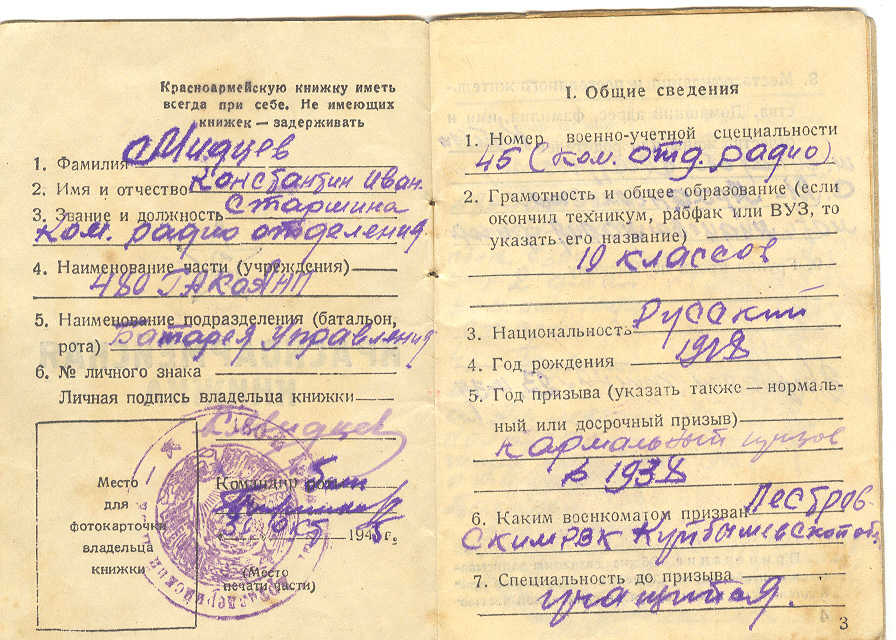 Красноармейскую книжку иметь
всегда при себе. Не имеющих
книжек — задерживать
1. Фамилия
2. Имя и отчество Константин Иван.
3. Звание и должность Старшина
Ком. радио отделения
4. Наименование части (учреждения)
480
5. Наименование подразделения (батальон,
рота) Батарея Управления
6. № личного знака
Личная подпись владельца книжки
Место
для
фотокарточки
владельца
книжки
Командир
1945 г.
(Место
печати части)
I. Общие сведения
1. Номер военно-учетной специальности
45 (ком. отд. радио)
2. Грамотность и общее образование (если
окончил техникум, рабфак или ВУЗ, то
указать его название)
10 классов
3. Национальность Русский
4. Год рождения 1918
5. Год призыва (указать также — нормаль-
ный или досрочный призыв)
нармальный призов
в 1938
6. Каким военкоматом призван
Ским РВК Куйбышевской об.
7. Специальность до призыва
учащийся.
3